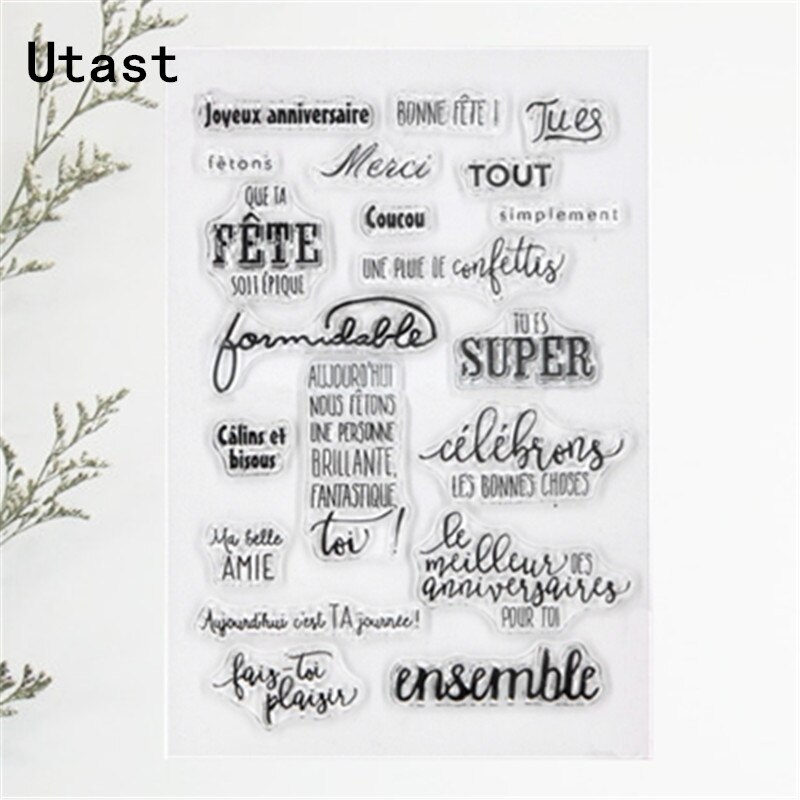 Utast
Joyeux anniversaire
BONNE FÊTE !
Tu es
fêtons
Merci
TOUT
QUE TA
FÊTE
SOIT ÉPIQUE
Coucou
simplement
UNE PLUIE DE confettis
formidable
TU ES
SUPER
AUJOURD'HUI
NOUS FÊTONS
UNE PERSONNE
BRILLANTE,
FANTASTIQUE,
toi !
Câlins et
bisous
célébrons
LES BONNES CHOSES
Ma belle
AMIE
le
meilleur DES
anniversaires
POUR TOI
Aujourd'hui c'est TA journée !
fais-toi
plaisir
ensemble